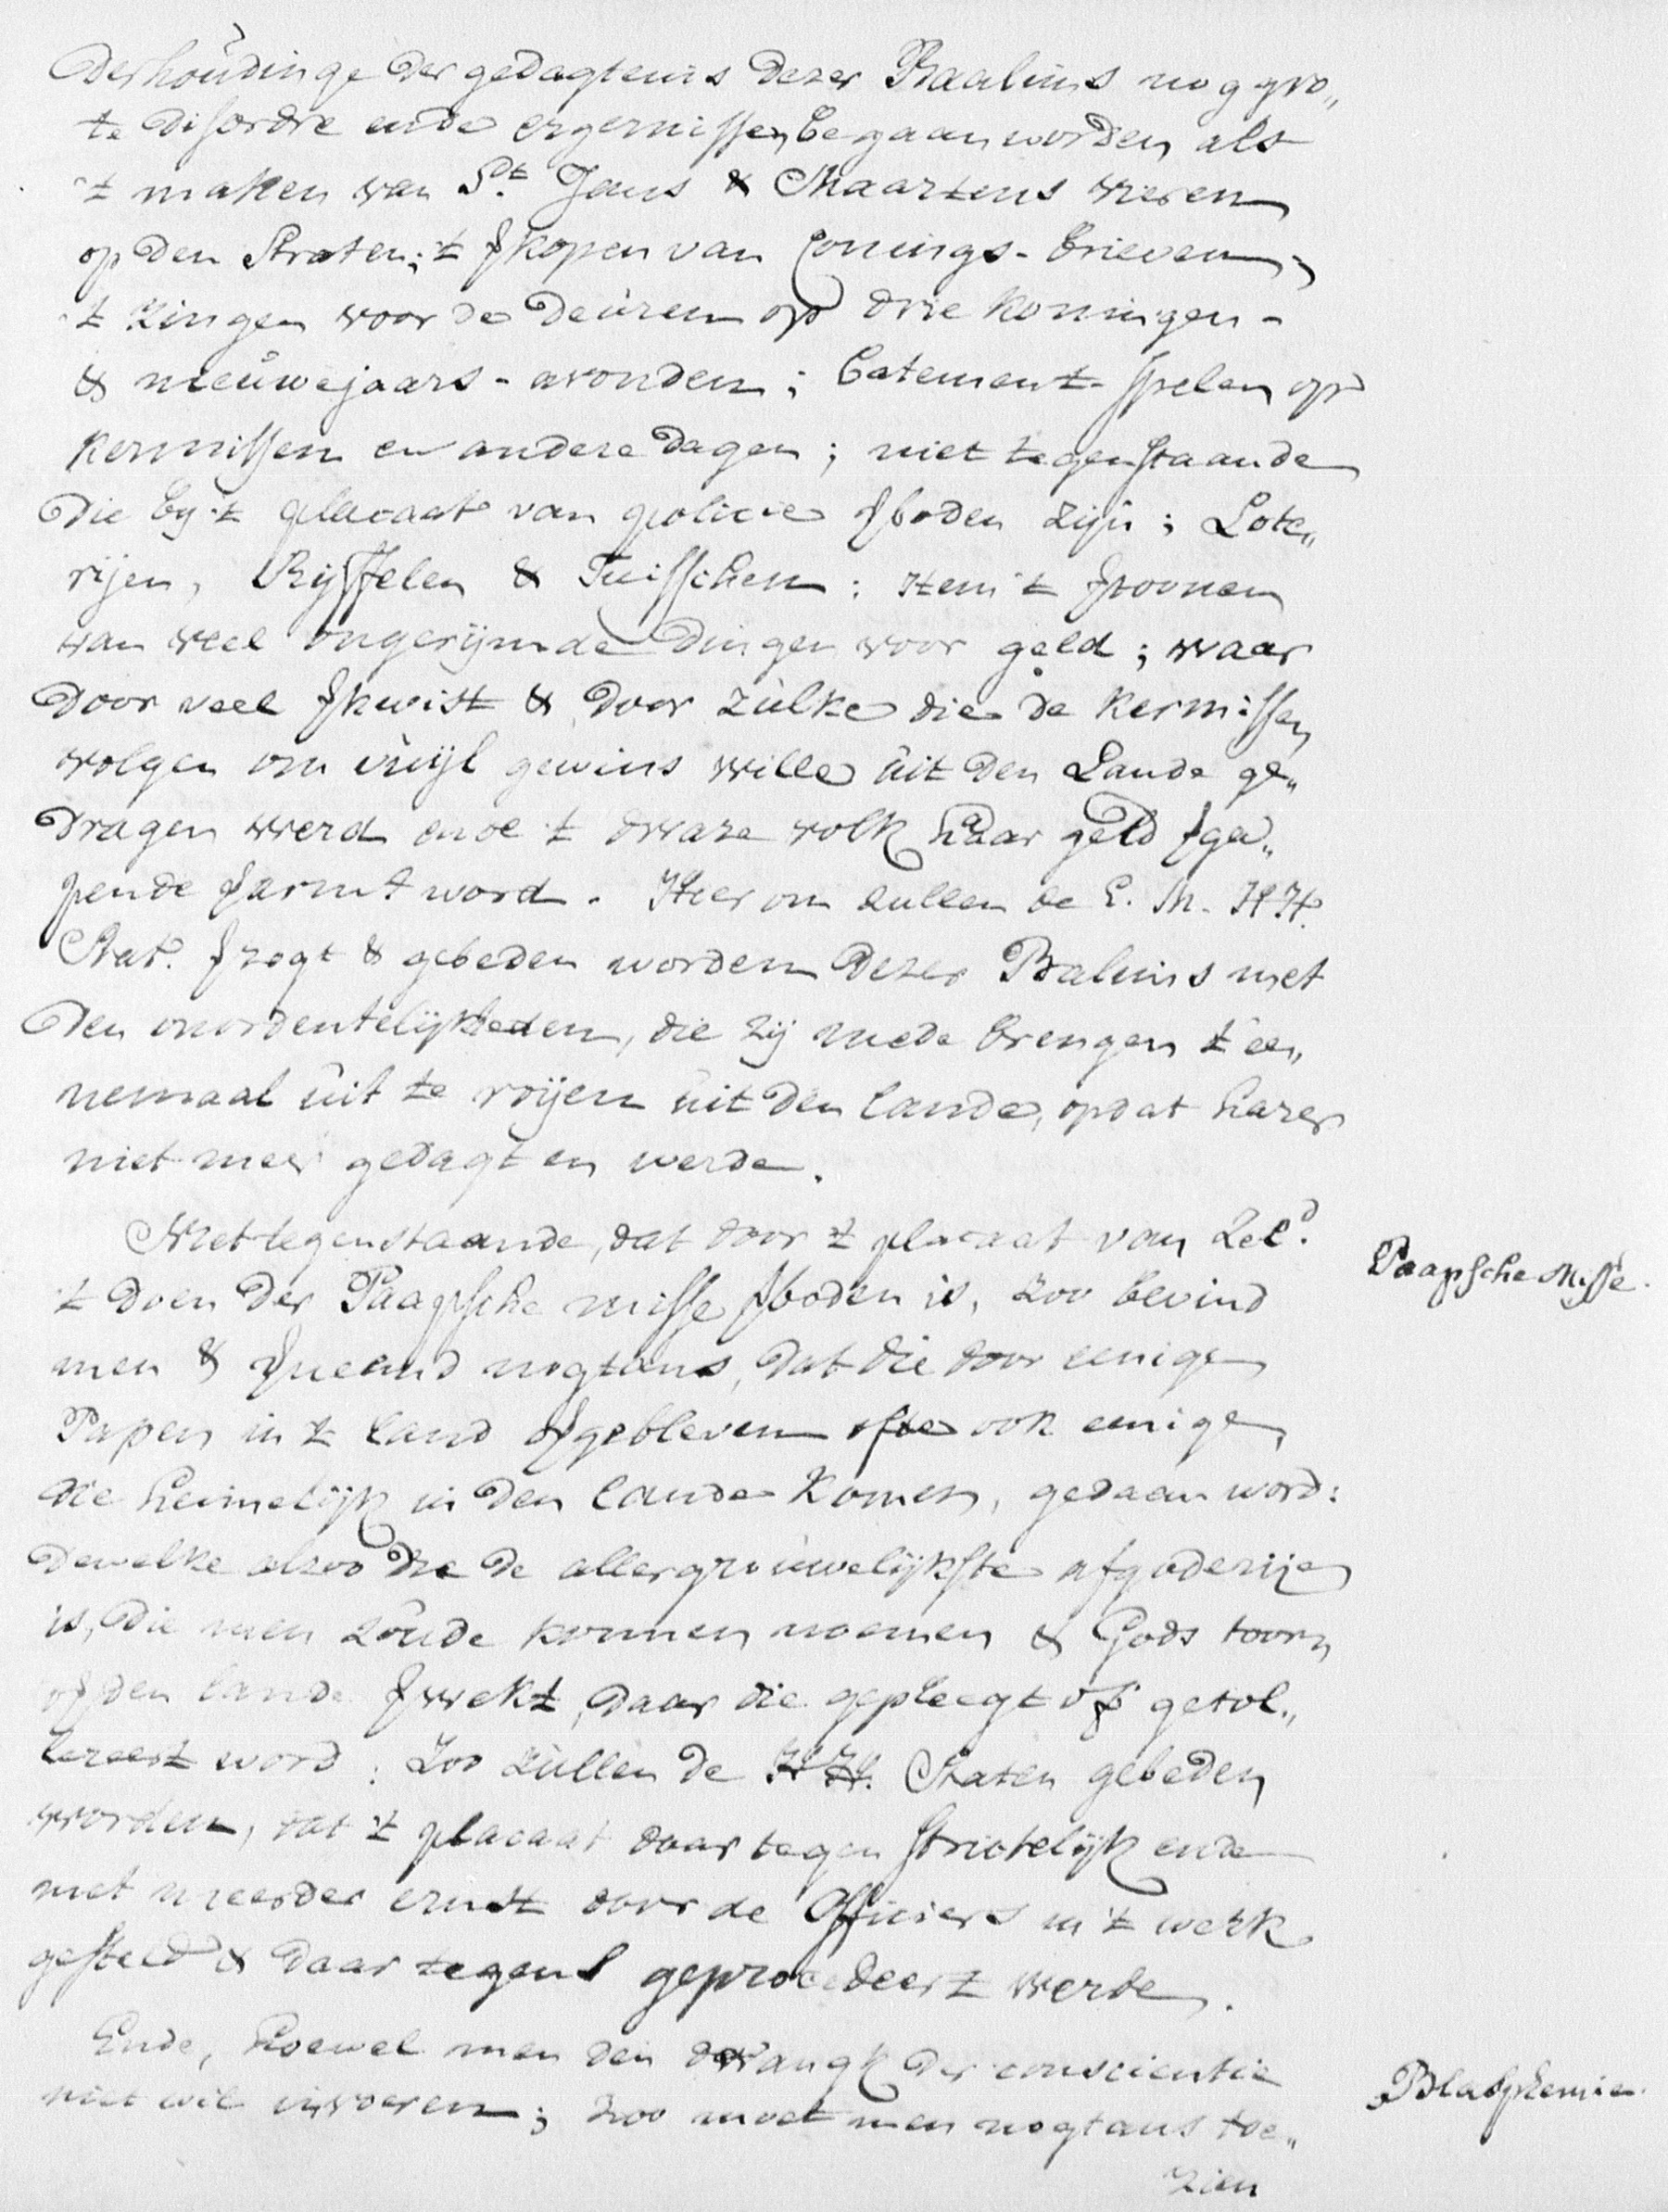 derhoudinge der gedagtenis dezer Baalims nog gro„
te disordre ende ergernissen begaan worden als
't maken van St. Jans & Maartens vieren
op den Straten; 't ſkopen van Conings-brieven;
't zingen voor de deuren op drie koningen-
& nieuwejaars-avonden; Batement-spelen op
kermissen en andere dagen; niet tegenstaande
die by 't placaat van policie ſboden zijn; Lote„
rijen, Ryffelen & Tuisschen: Item 't ſtoonen
van veel ongerijmde dingen voor geld; waar
door veel ſkwist & door zulke die de kermissen
volgen om vuijl gewins wille uit den Lande ge„
dragen werd ende 't dwaze volk haar geld ſga„
pende ſarmt word. Hier om zullen de E. M. HH.
Stat. ſzogt & gebeden worden dezer Balims met
den onordentelijkheden, die zij mede brengen t'ee„
nemaal uit te roijen uit den lande, opdat harer
niet meer gedagt en werde.
Niet tegenstaande, dat door 't placaat van Zeld.
Paapsche Misse.
't doen der Paapsche misse ſboden is, zoo bevind
men & ſneemd nogtans, dat die door eenige
Papen in 't land ofgebleven ofte ook eenige,
die heimelijk in den lande komen, gedaan word:
Dewelke alzoo ze de allergrouwelijkste afgoderije
is, die men zoude konnen noemen & Gods toorn
op den lande ſwekt, daar die gepleegt of getol„
lereert word: Zoo zullen de HH. Staten gebeden
worden, dat 't placaat daar tegen strictelijk ende
met meerder ernst door de Officiers in 't werk
gesteld & daar tegens geprocedeert werde.
Ende, hoewel men den dwangk der conscientie
Blasphemie.
niet wil invoeren; zoo moet men nogtans toe„
zien